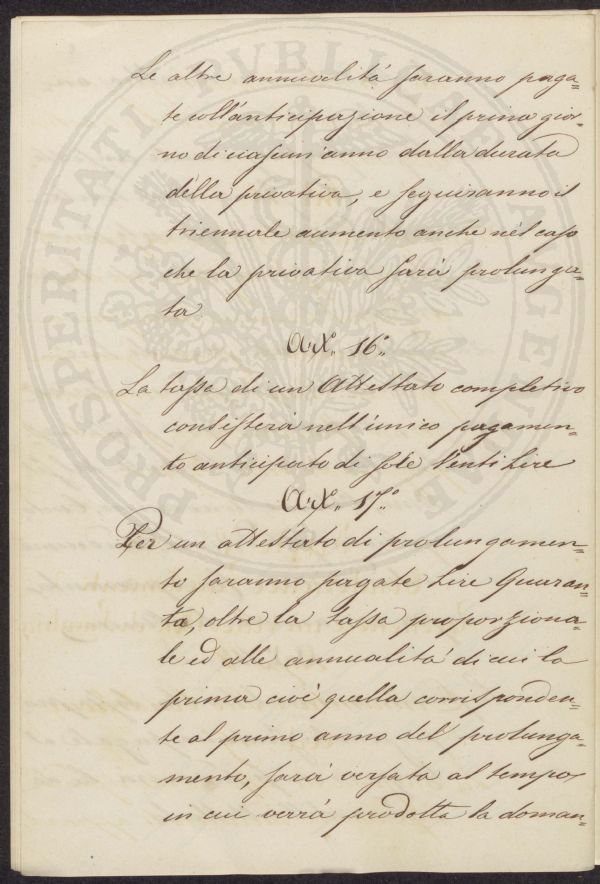 Le altre annualità saranno paga=
te coll'anticipazione il primo gior=
no di ciascun'anno dalla durata
della privativa, e seguiranno il
triennale aumento anche nel caso
che la privativa sarà prolunga=
ta
Art.° 16°
La tassa di un Attestato completivo
consisterà nell'unico pagamen=
to anticipato di sole Venti Lire
Art.° 17°
Per un attestato di prolungamen=
to saranno pagate Lire Quaran=
ta, oltre la tassa proporziona=
le ed alle annualità di cui la
prima cioè quella corrisponden=
te al primo anno del prolunga=
mento, sarà versata al tempo
in cui verrà prodotta la doman=
PROSPERITATI PUBLICAE AUGENDAE